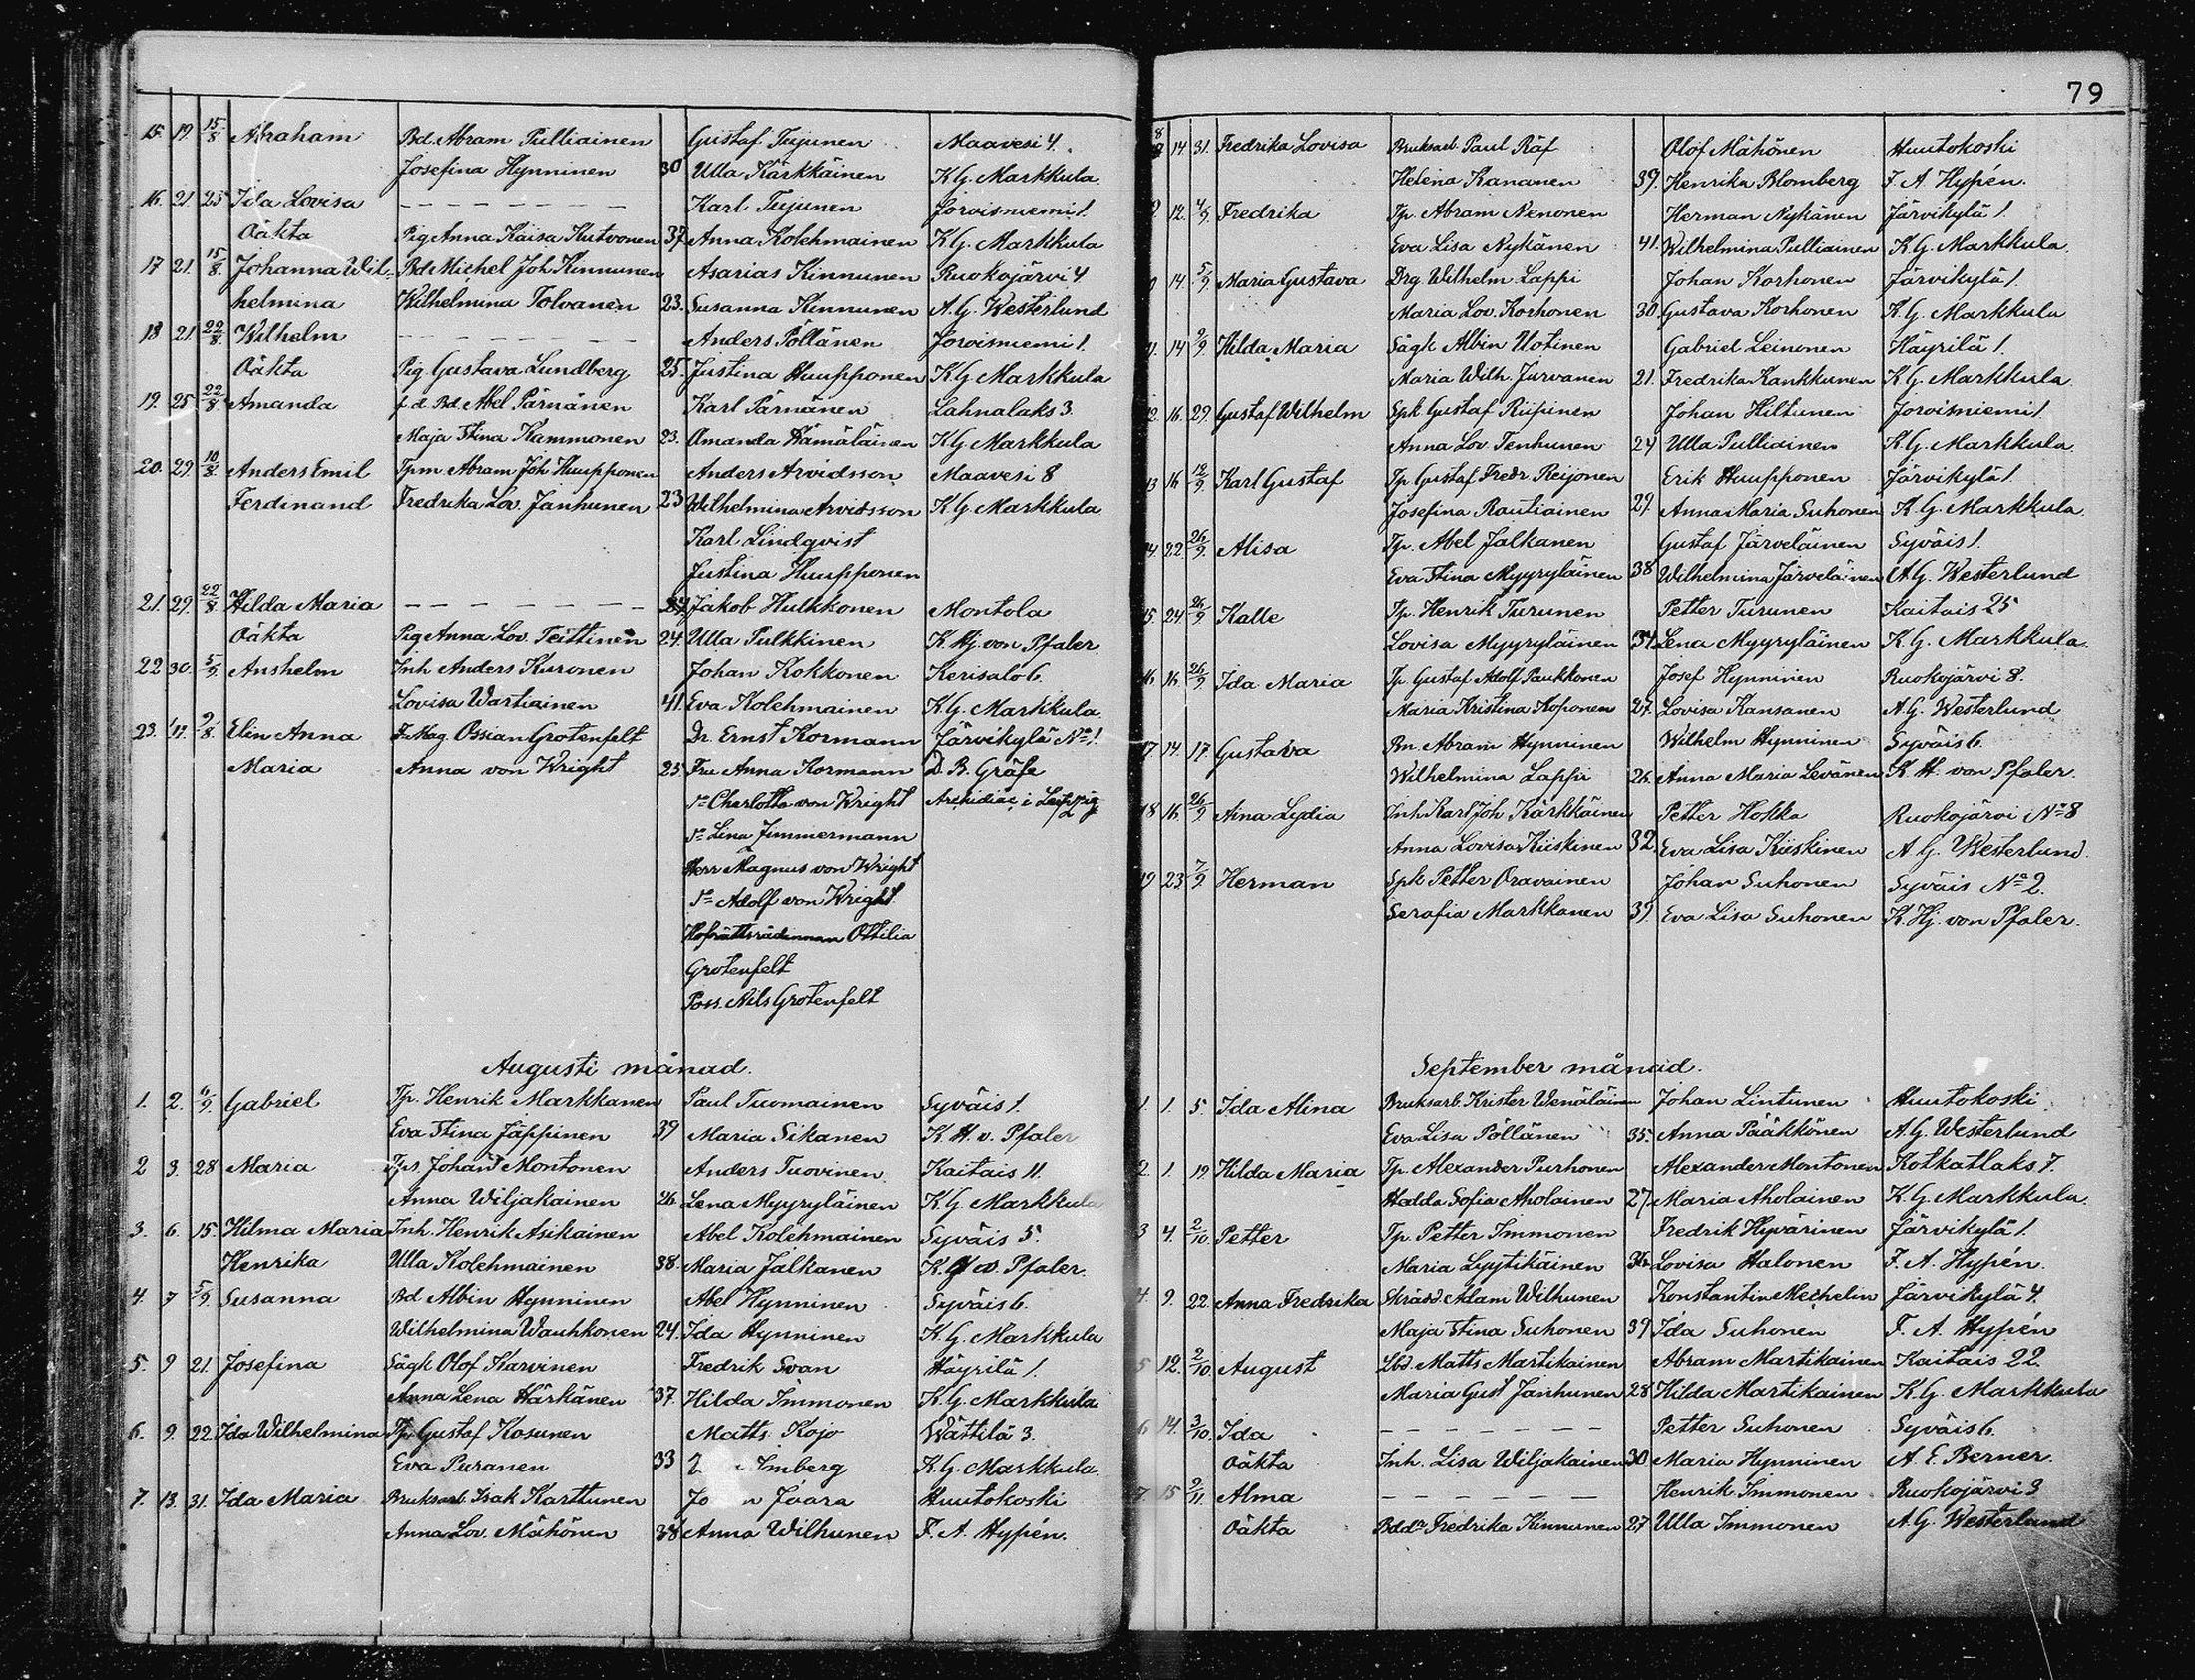 79
15. 19. 15/8. Abraham Bd. Abram Pulliainen Gustaf Tujunen Maavesi 4.
Josefina Hynninen 30 Ulla Kärkkäinen K.G. Markkula.
16. 21 25 Ida Lovisa — — — — — — — Karl Tujunen Jorvisniemi 1.
Oäkta Pig. Anna Kaisa Kutvonen 37. Anna Kolehmainen K.G. Markkula
17 21. 15/8. Johanna Wil- Bd Michel Joh Kinnunen Asarias Kinnunen Ruokojärvi 4
helmina Wilhelmina Tolvanen 23. Susanna Kinnunen A.G. Westerlund
18 21. 22/8. Wilhelm — — — — — — — Anders Pöllänen Jorvisniemi 1.
Oäkta Pig. Gustava Lundberg 25. Justina Huupponen K.G. Markkula
19. 25 22/8. Amanda f.d. Bd. Abel Pärnänen Karl Pärnänen Lahnalaks 3.
Maja Stina Kammonen 23. Amanda Hämäläinen K.G. Markkula
20. 29. 10/8. Anders Emil Tpm Abram Joh Huupponen Anders Arvidsson Maavesi 8
Ferdinand Fredrika Lov. Janhunen 23 Wilhelmina Arvidsson K.G. Markkula
Karl Lindqvist
Justina Huupponen
21. 29. 22/8 Hilda Maria — — — — — — — Jakob Hulkkonen Montola
Oäkta Pig Anna Lov. Teittinen 24. Ulla Pulkkinen K. Hj. von Pfaler.
22 30. 5/9. Anshelm Inh Anders Kuronen Johan Kokkonen Kerisalo 6.
Lovisa Wartiainen 41. Eva Kolehmainen K.G. Markkula.
23. 17. 9/8. Elin Anna F. Mag. Ossian Grotenfelt Dr. Ernst Kormann Järvikylä No 1.
Maria Anna von Wright 25 Fru Anna Kormann D. B. Gräfe
Fr. Charlotta von Wright Archidiac i Leipzig
Fr. Lina Zimmermann
Herr Magnus von Wright
Fr. Adolf von Wright
Hofrättsrådinnan Ottilia
Grotenfelt
Poss. Nils Grotenfelt
Augusti månad.
1. 2. 6/9. Gabriel Tp. Henrik Markkanen Paul Tuomainen Syväis 1.
Eva Stina Jäppinen 39 Maria Sikanen K. H. v. Pfaler
2 3. 28 Maria Tps. Johan Montonen Anders Tuovinen Kaitais 11.
Anna Wiljakainen 26. Lena Myyryläinen K.G. Markkula
3. 6. 15. Hilma Maria Inh. Henrik Asikainen Abel Kolehmainen Syväis 5.
Henrika Ulla Kolehmainen 38. Maria Jalkanen K. v. Pfaler.
4. 7 5/9. Susanna Bd Albin Hynninen Abel Hynninen Syväis 6.
Wilhelmina Wauhkonen 24. Ida Hynninen K.G. Markkula
5. 9 21. Josefina Sågk Olof Karvinen Fredrik Svan Häyrilä 1.
Anna Lena Härkänen 37. Hilda Immonen K.G. Markkula
6. 9. 22. Ida Wilhelmina Tp. Gustaf Kosunen Matts Kojo Wättilä 3.
Eva Puranen 33 Imberg K.G. Markkula.
7. 13. 31. Ida Maria Bruksarb. Isak Karttunen Jaara Huutokoski
Anna Lov. Mähönen 38 Anna Wilhunen F. A. Hypén.
8 14 31. Fredrika Lovisa Bruksarb. Paul Räf Olof Mähönen Huutokoski
Helena Kananen 39. Henrika Blomberg F. A. Hypén.
9. 12. 4/9. Fredrika Tp. Abram Nenonen Herman Nykänen Järvikylä 1.
Eva Lisa Nykänen 41. Wilhelmina Pulliainen K.G. Markkula.
14 5/9. Maria Gustava Drg Wilhelm Lappi Johan Korhonen Järvikylä 1.
Maria Lov. Korhonen 30. Gustava Korhonen K.G. Markkula
14 9/9. Hilda Maria Sågk Albin Uotinen Gabriel Leinonen Häyrilä 1.
Maria Wilh. Jurvanen 21. Fredrika Kankkunen K.G. Markkula.
16. 29 Gustaf Wilhelm Spk Gustaf Riipinen Johan Hiltunen Jorvisniemi 1.
Anna Lov. Tenhunen 24 Ulla Pulliainen K.G. Markkula.
13 16 12/9. Karl Gustaf Tp Gustaf Fredr Reijonen Erik Huupponen Järvikylä 1.
Josefina Rautiainen 29. Anna Maria Suhonen K.G. Markkula.
14. 22 26/9 Alisa Tp. Abel Jalkanen Gustaf Järveläinen Syväis 1.
Eva Stina Myyryläinen 38 Wilhelmina Järveläinen A.G. Westerlund
15. 24 26/9 Kalle Tp. Henrik Turunen Petter Turunen Kaitais 25
Lovisa Myyryläinen 34. Lena Myyryläinen K.G. Markkula.
16. 16. 26/9 Ida Maria Tp. Gustaf Adolf Paukkonen Josef Hynninen Ruokojärvi 8.
Maria Kristina Koponen 27. Lovisa Kansanen A.G. Westerlund
17. 14 17. Gustava Bn. Abram Hynninen Wilhelm Hynninen Syväis 6.
Wilhelmina Lappi 26. Anna Maria Levänen K. H. von Pfaler.
18 16. 26/9 Aina Lydia Inh Karl Joh Kärkkäinen Petter Hokka Ruokojärvi No 8
Anna Lovisa Kiiskinen 32. Eva Lisa Kiiskinen A.G. Westerlund.
19 23 7/9. Herman Spk Petter Oravainen Johan Suhonen Syväis No 2.
Serafia Markkanen 39. Eva Lisa Suhonen K. Hj. von Pfaler.
September månad.
1. 1. 5. Ida Alina Bruksarb. Krister Wenäläinen Johan Lintunen Huutokoski.
Eva Lisa Pöllänen 35. Anna Pääkkönen A.G. Westerlund
2. 1. 19. Hilda Maria Tp. Alexander Purhonen Alexander Montonen Kotkatlaks 7.
Hedda Sofia Aholainen 27. Maria Aholainen K.G. Markkula.
3 4. 2/10. Petter Tp. Petter Immonen Fredrik Hyvärinen Järvikylä 1.
Maria Lyytikäinen 36. Lovisa Halonen F. A. Hypén.
4. 9. 22. Anna Fredrika Skräd. Adam Wilhunen Konstantin Mechelin Järvikylä 4.
Maja Stina Suhonen 39 Ida Suhonen F. A. Hypén
5 12. 2/10. August Lbd. Matts Martikainen Abram Martikainen Kaitais 22.
Maria Gust Janhunen 28 Hilda Martikainen K.G. Markkula
6 14. 3/10. Ida — — — — — — Petter Suhonen Syväis 6.
Oäkta Inh. Lisa Wiljakainen 30 Maria Hynninen A. E. Berner.
7. 15 2/11. Alma — — — — — — Henrik Immonen Ruokojärvi 3
Oäkta Bdd. Fredrika Kinnunen 27 Ulla Immonen A.G. Westerlund